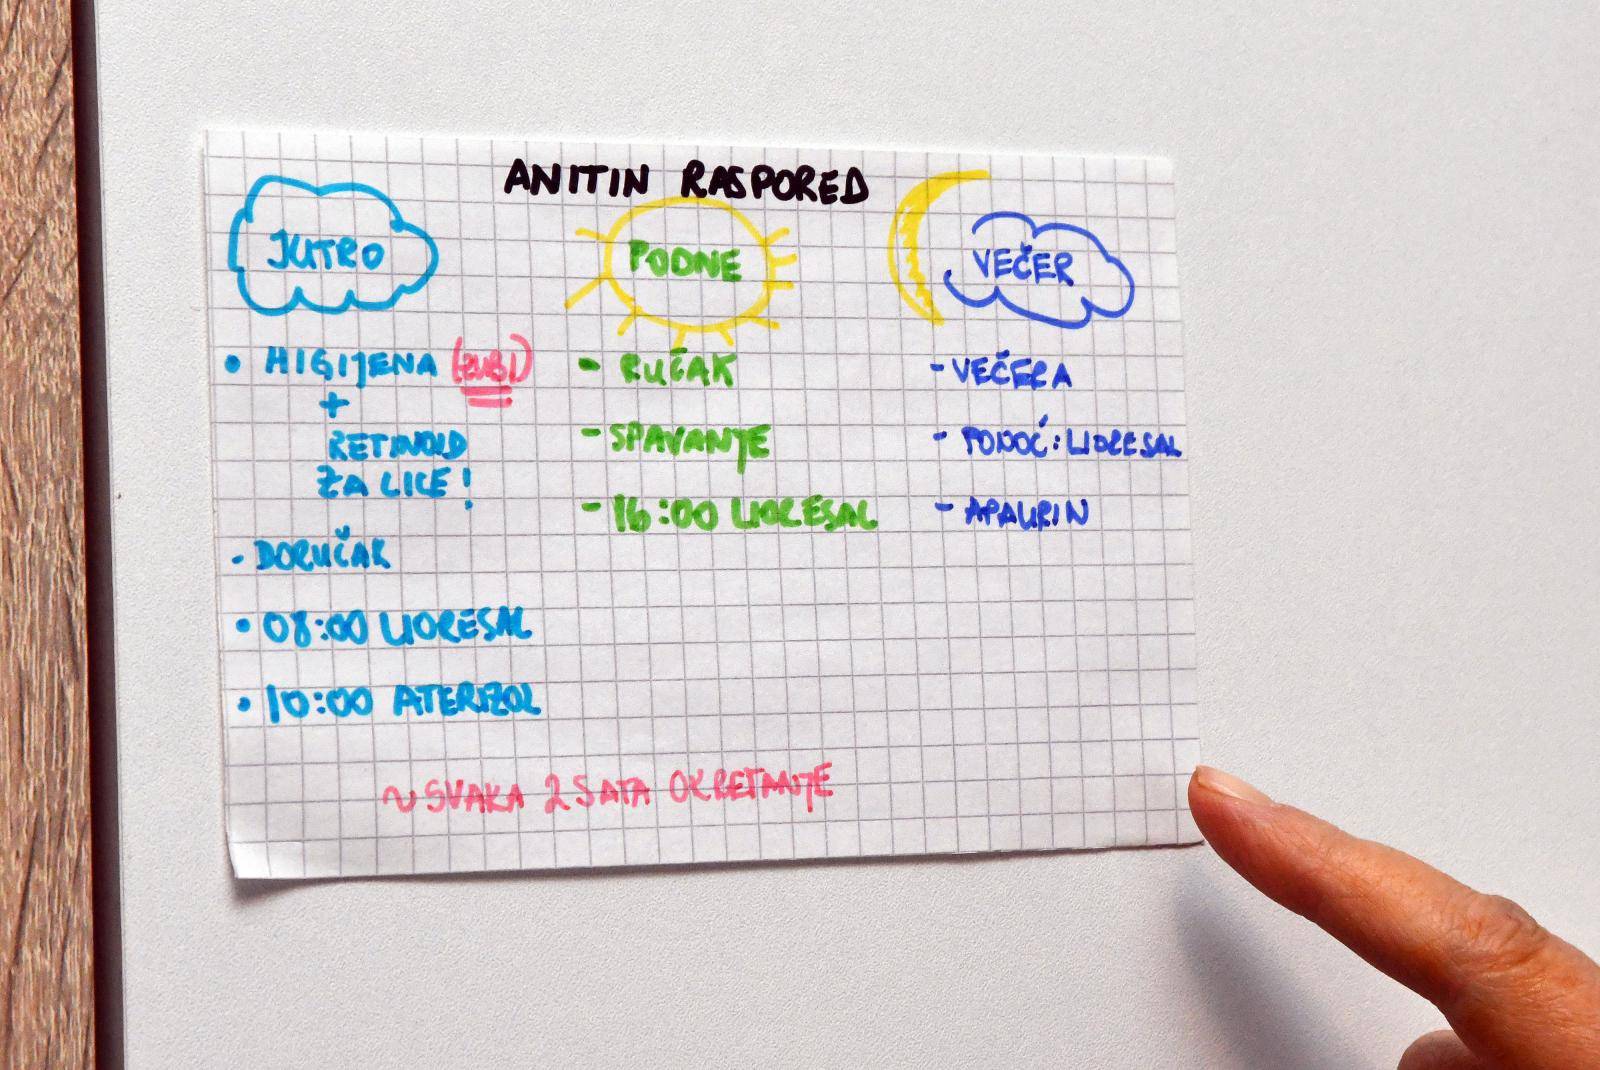 ANITIN RASPORED
JUTRO
• HIGIJENA (ZUBI)
+
RETINOID
ZA LICE!
• DORUČAK
• 08:00 LIORESAL
• 10:00 ATERIZOL
PODNE
- RUČAK
- SPAVANJE
- 16:00 LIORESAL
VEČER
- VEČERA
- PONOĆ: LIORESAL
- APAURIN
~ SVAKA 2 SATA OKRETANJE